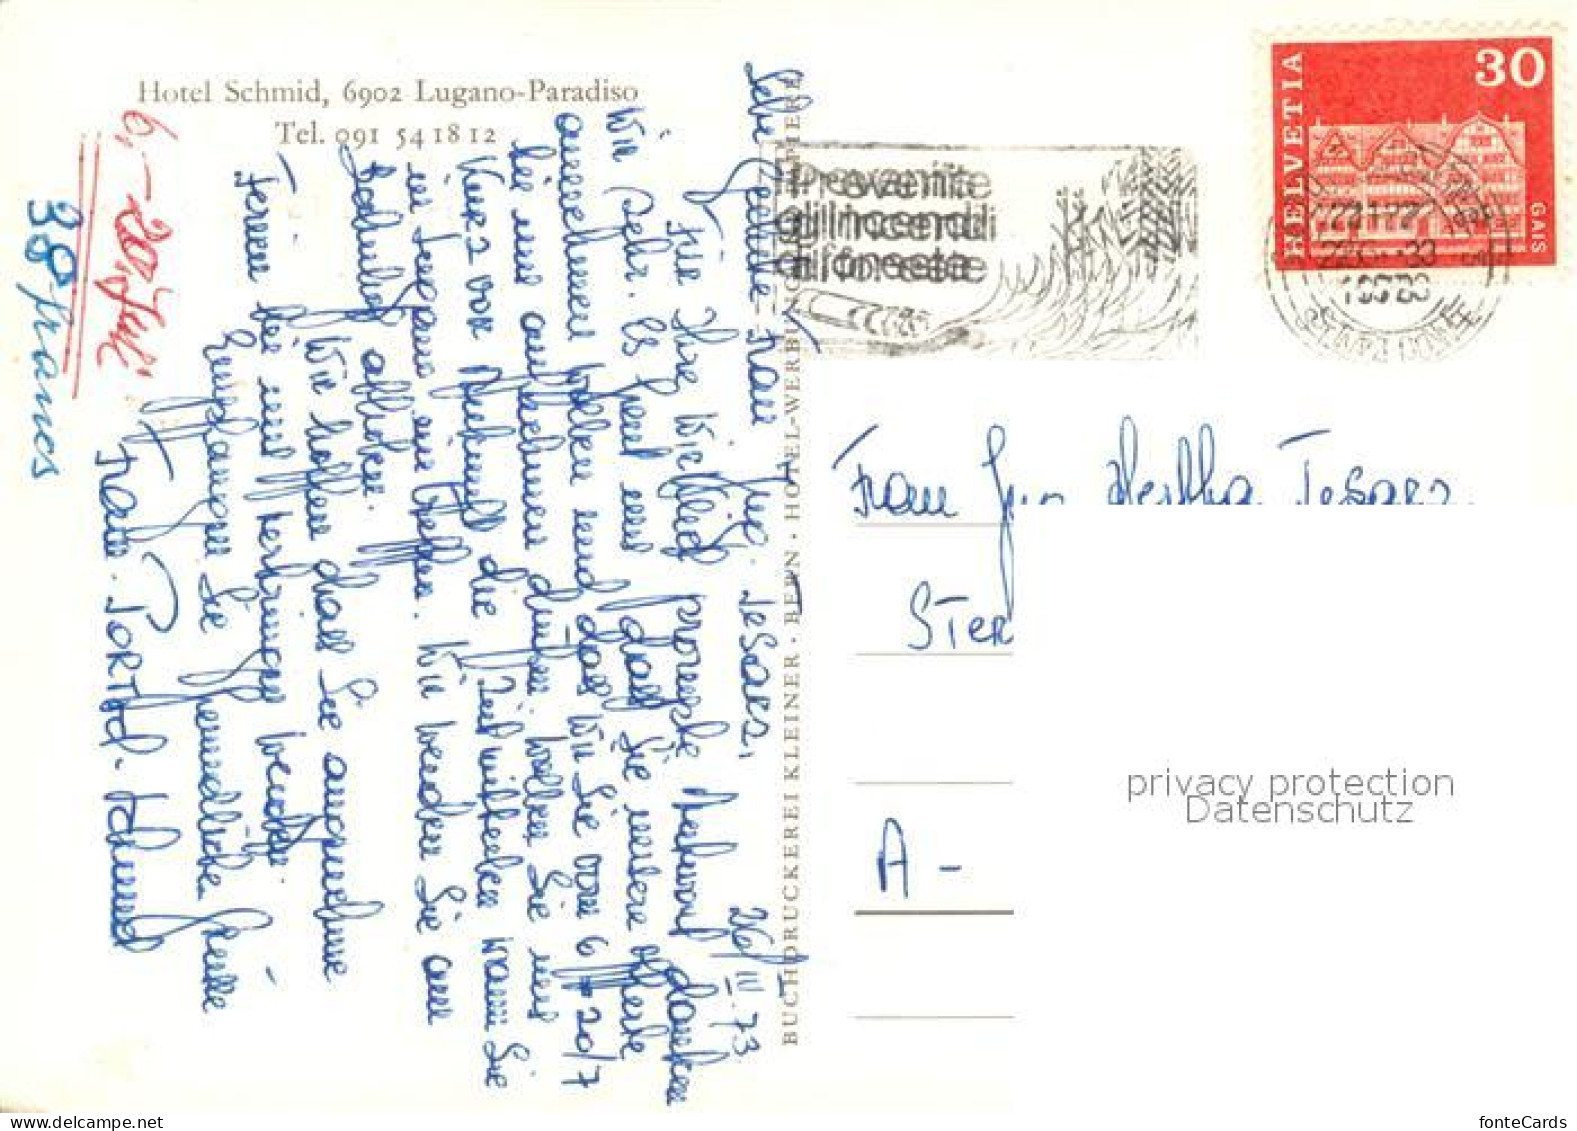 Hotel Schmid, 6902 Lugano-Paradiso
Tel. 091 54 18 12
6.-20. Juli
38 francs
26/IV.73
Sehr geehrte Frau Ing. Tesars,
Für Ihre wirklich prompte Antwort danken
wir sehr. Es freut uns dass Sie unsere Offerte
annehmen wollen und dass wir Sie vom 6-20/7
bei uns aufnehmen dürfen. Wollen Sie uns
kurz vor Ankunft die Zeit mitteilen wann Sie
in Lugano eintreffen. Wir werden Sie am
Bahnhof abholen.
Wir hoffen dass Sie angenehme
Ferien bei uns verbringen werden.
Empfangen Sie freundliche Grüsse
Fam. Schmid
BUCHDRUCKEREI KLEINER · BERN · HOTEL-WERBUNG
Prevenite
gli incendi
di foreste
HELVETIA
30
GAIS
Frau Ing. Hertha Tesars
Ster
A -
privacy protection
Datenschutz
fonteCards